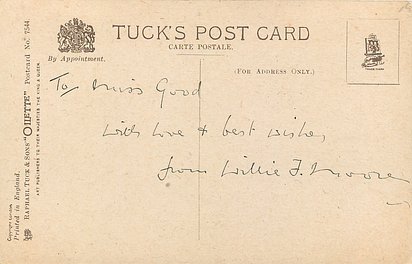 TUCK'S POST CARD
CARTE POSTALE.
By Appointment.
(FOR ADDRESS ONLY.)
TRADE MARK
To Miss Good
with love & best wishes
from Willie F. Moore
Copyright London.
Printed in England.
RAPHAEL TUCK & SONS' "OILETTE" Postcard No. 7544
ART PUBLISHERS TO THEIR MAJESTIES THE KING & QUEEN.